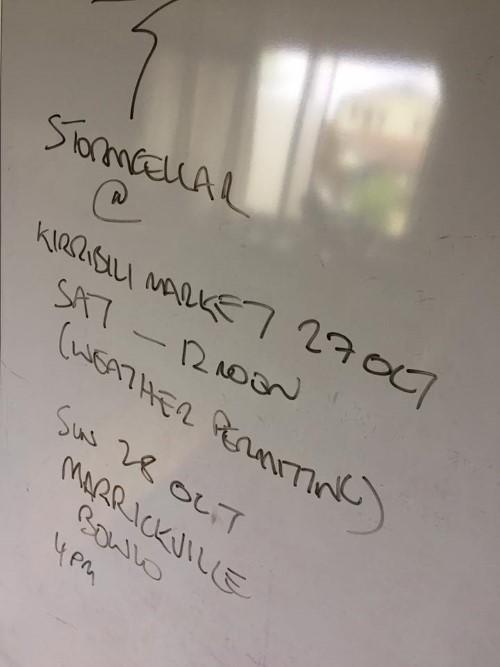 STORMCELLAR
@
KIRRIBILI MARKET 27 OCT
SAT — 12 NOON
(WEATHER PERMITTING)
SUN 28 OCT
MARRICKVILLE
BOWLO
4PM